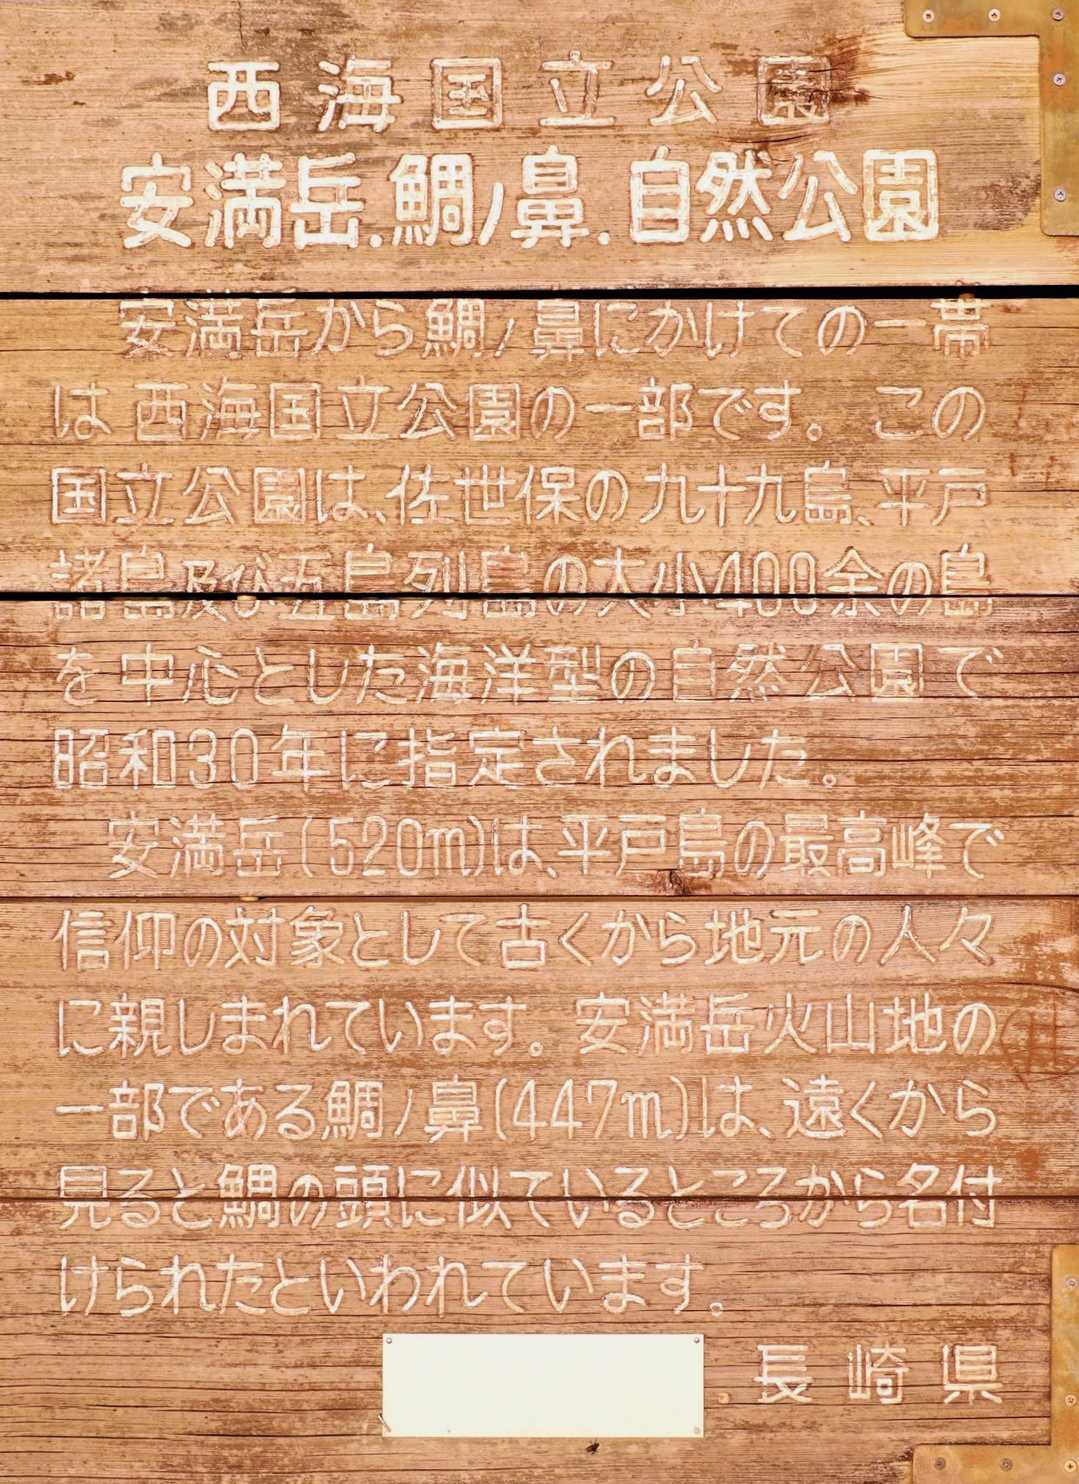 西海国立公園
安満岳.鯛ノ鼻.自然公園
安満岳から鯛ノ鼻にかけての一帯
は西海国立公園の一部です。この
国立公園は、佐世保の九十九島、平戸
諸島及び五島列島の大小400余の島
を中心とした海洋型の自然公園で
昭和30年に指定されました。
安満岳(520m)は、平戸島の最高峰で
信仰の対象として古くから地元の人々
に親しまれています。安満岳火山地の
一部である鯛ノ鼻(447m)は、遠くから
見ると鯛の頭に似ているところから名付
けられたといわれています。
長崎県